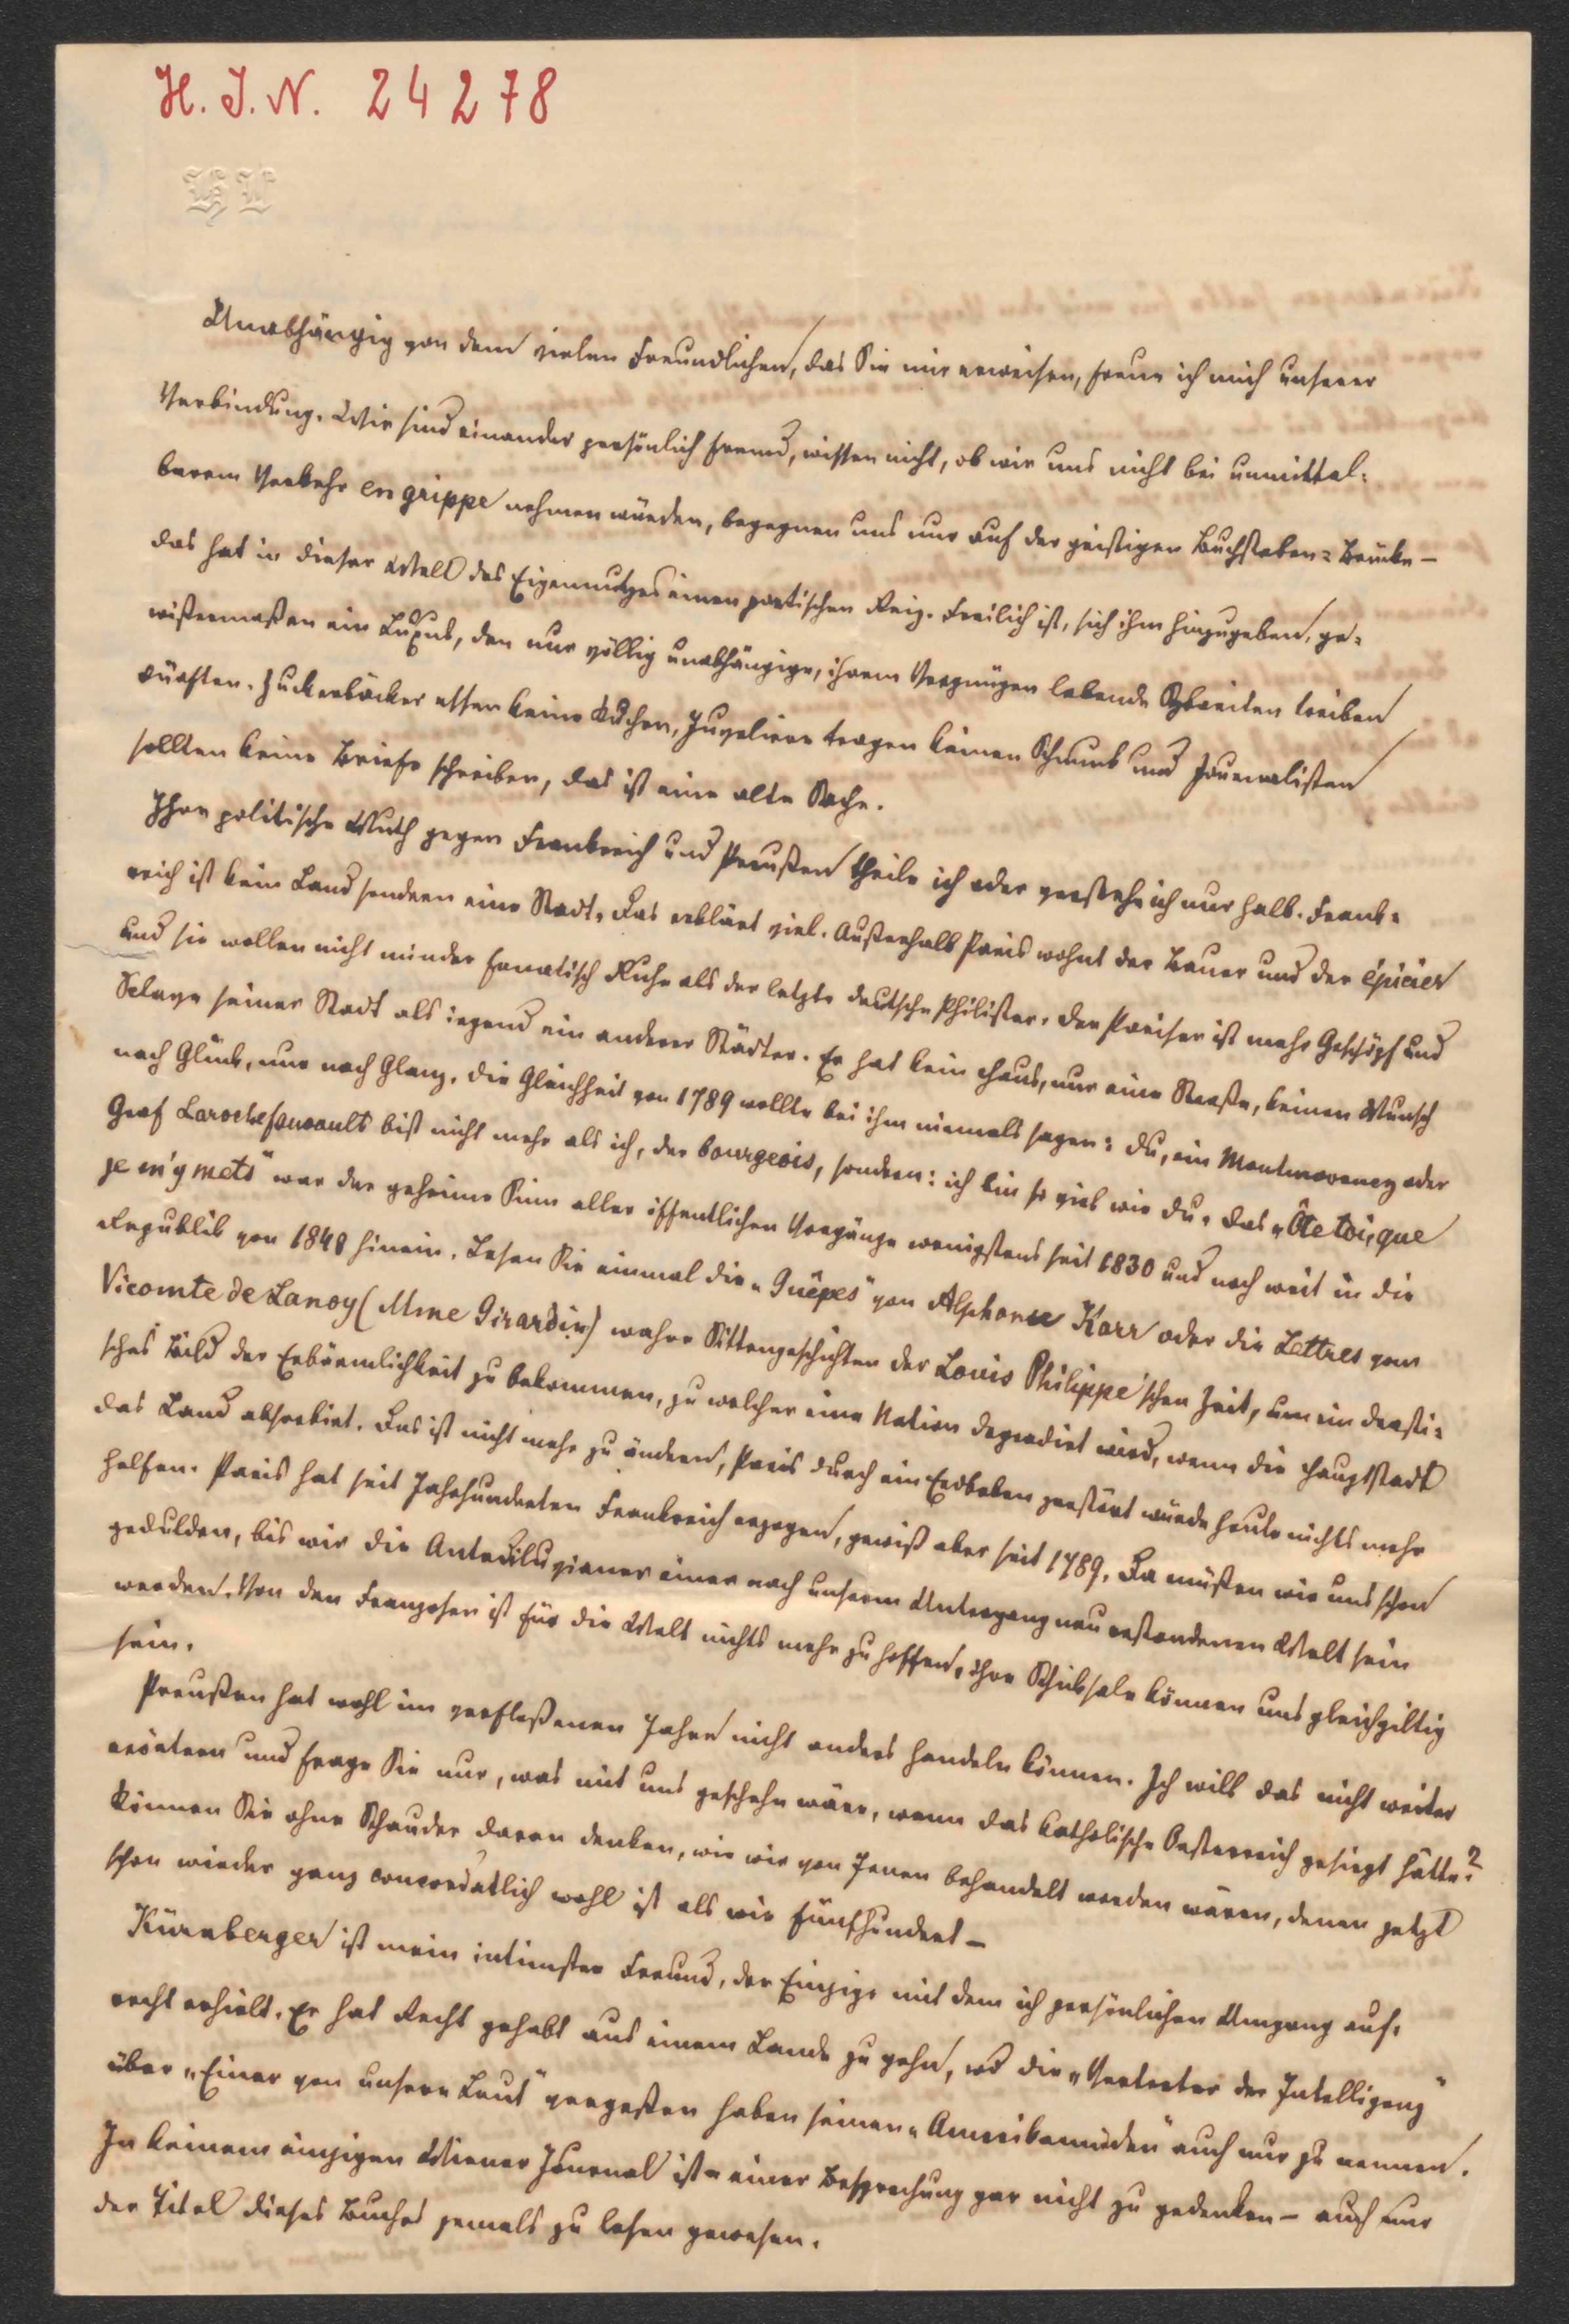 H. I. N. 24278
HL
Unabhängig von dem vielen Freundlichen, das Sie mir erweisen, freue ich mich unserer
Verbindung. Wir sind einander persönlich fremd, wissen nicht, ob wir uns nicht bei unmittel-
barem Verkehr en grippe nehmen würden, begegnen uns nur auf der geistigen Buchstaben-Brücke –
das hat in dieser Welt des Eigennutzes einen poetischen Reiz. Freilich ist, sich ihm hinzugeben, ge-
wißermaßen ein Luxus, den nur völlig unabhängige, ihrem Vergnügen lebende Sybariten treiben
dürften. Zuckerbäcker essen keine Kuchen, Juveliere tragen keinen Schmuck und Journalisten
sollten keine Briefe schreiben, das ist eine alte Sache.
Ihre politische Wuth gegen Frankreich und Preußen theile ich oder verstehe ich nur halb. Frank-
reich ist kein Land sondern eine Stadt. Das erklärt viel. Außerhalb Paris wohnt der Bauer und der épicier
und sie wollen nicht minder fanatisch Ruhe als der letzte deutsche Philister. Der Pariser ist mehr Geschöpf und
Sclave seiner Stadt als irgend ein anderer Städter. Er hat kein Haus, nur eine Straße, keinen Wunsch
nach Glück, nur nach Glanz. Die Gleichheit von 1789 wollte bei ihm niemals sagen: du, ein Montmorency oder
Graf Larochefoucault bist nicht mehr als ich, der bourgeois, sondern: ich bin so viel wie du. Das „Ôte toi, que
je m'y mets" war der geheime Sinn aller öffentlichen Vorgänge wenigstens seit 1830 und noch weit in die
Republik von 1848 hinein. Lesen Sie einmal die „Guêpes" von Alphonse Karr oder die Lettres vom
Vicomte de Lanoy (Mme Girardin) wahre Sittengeschichten der Louis Philippe'schen Zeit, um ein drasti-
sches Bild der Erbärmlichkeit zu bekommen, zu welcher eine Nation degradirt wird, wenn die Hauptstadt
das Land absorbirt. Das ist nicht mehr zu ändern, Paris durch ein Erdbeben zerstört würde heute nichts mehr
helfen. Paris hat seit Jahrhunderten Frankreich erzogen, gewiß aber seit 1789. Da müßen wir uns schon
gedulden, bis wir die Antediluvianer einer nach unserm Untergang neu erstandenen Welt sein
werden. Von den Franzosen ist für die Welt nichts mehr zu hoffen, ihre Schicksale können uns gleichgiltig
sein.
Preußen hat wohl im verfloßenen Jahre nicht anders handeln können. Ich will das nicht weiter
erörtern und frage Sie nur, was mit uns geschehn wäre, wenn das katholische Oesterreich gesiegt hätte?
Können Sie ohne Schauder daran denken, wie wir von Jenen behandelt worden wären, denen jetzt
schon wieder ganz concordatlich wohl ist als wie fünfhundert –
Kürnberger ist mein intimster Freund, der Einzige mit dem ich persönlichen Umgang auf-
recht erhielt. Er hat Recht gehabt aus einem Lande zu gehn, wo die „Vertreter der Intelligenz"
über „Einer von unsere Leut" vergeßen haben seinen „Amerikamüden" auch nur zu nennen.
In keinem einzigen Wiener Journal ist – einer Besprechung gar nicht zu gedenken – auch nur
der Titel dieses Buches jemals zu lesen gewesen.